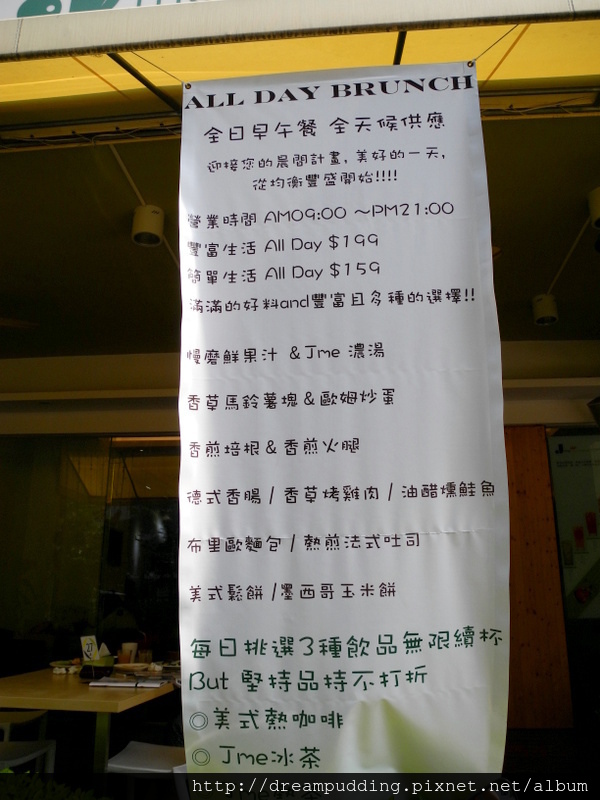 ALL DAY BRUNCH
全日早午餐 全天候供應
迎接您的晨間計畫,美好的一天,
從均衡豐盛開始!!!!
營業時間 AM09:00 ~PM21:00
豐富生活 All Day $199
簡單生活 All Day $159
滿滿的好料and豐富且多種的選擇!!
慢磨鮮果汁 & Jme 濃湯
香草馬鈴薯塊 & 歐姆炒蛋
香煎培根 & 香煎火腿
德式香腸 / 香草烤雞肉 / 油醋燻鮭魚
布里歐麵包 / 熱煎法式吐司
美式鬆餅 / 墨西哥玉米餅
每日挑選3種飲品無限續杯
But 堅持品持不打折
◎美式熱咖啡
◎ Jme冰茶
http://dreampudding.pixnet.net/album